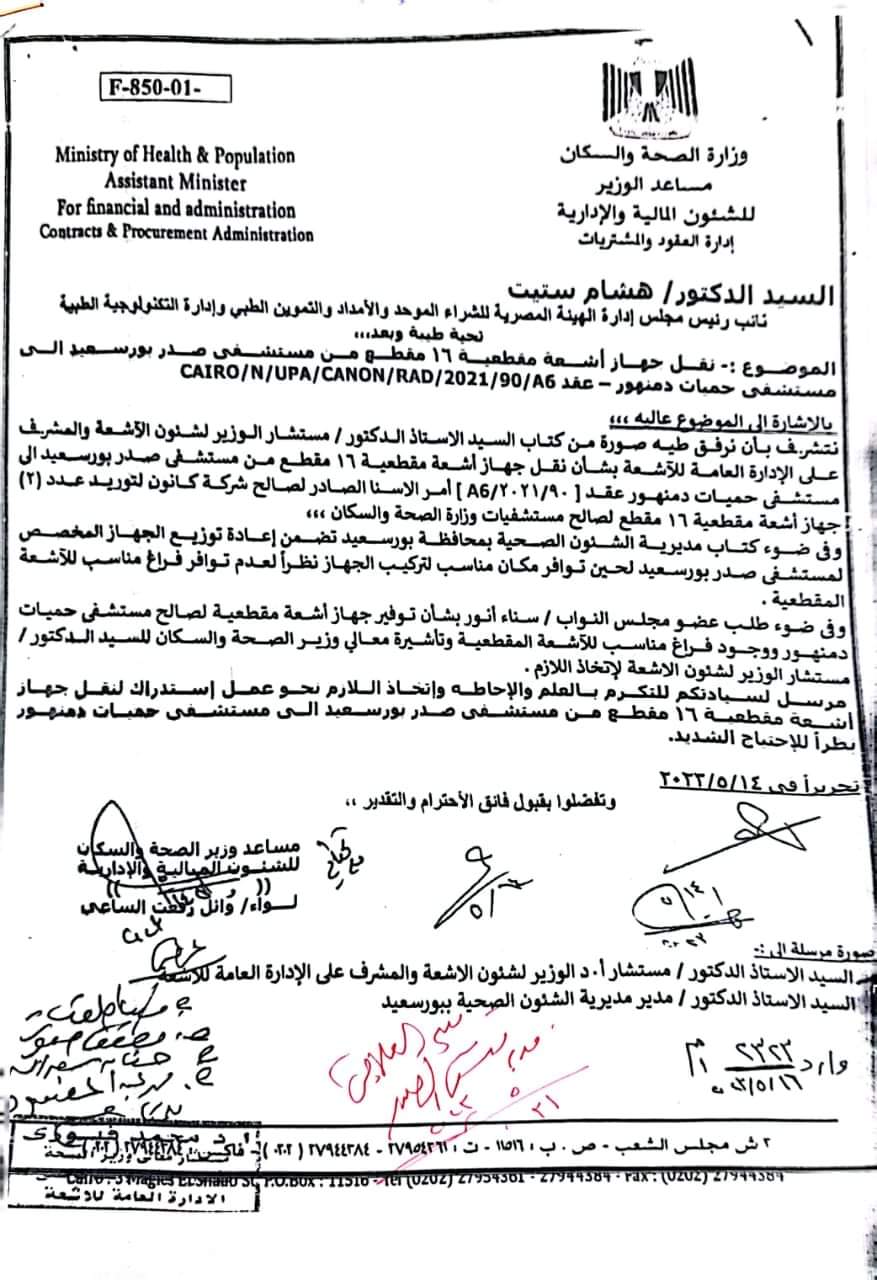 F-850-01-
Ministry of Health & Population
Assistant Minister
For financial and administration
Contracts & Procurement Administration
وزارة الصحة والسكان
مساعد الوزير
للشئون المالية والإدارية
إدارة العقود والمشتريات
السيد الدكتور/ هشام ستيت
نائب رئيس مجلس إدارة الهيئة المصرية للشراء الموحد والأمداد والتموين الطبي وإدارة التكنولوجية الطبية
تحية طيبة وبعد،،،
الموضوع :- نقل جهاز أشعة مقطعية ١٦ مقطع من مستشفى صدر بورسعيد الى
مستشفى حميات دمنهور – عقد CAIRO/N/UPA/CANON/RAD/2021/90/A6
بالاشارة الى الموضوع عاليه ،،،
نتشرف بأن نرفق طيه صورة من كتاب السيد الاستاذ الدكتور / مستشار الوزير لشئون الآشعة والمشرف
على الإدارة العامة للآشعة بشأن نقل جهاز أشعة مقطعية ١٦ مقطع من مستشفى صدر بورسعيد الى
مستشفى حميات دمنهور عقد [ A٦/٢٠٢١/٩٠ ] أمر الاسنا الصادر لصالح شركة كانون لتوريد عدد (٢)
جهاز أشعة مقطعية ١٦ مقطع لصالح مستشفيات وزارة الصحة والسكان ،،،
وفى ضوء كتاب مديرية الشئون الصحية بمحافظة بورسعيد تضمن إعادة توزيع الجهاز المخصص
لمستشفى صدر بورسعيد لحين توافر مكان مناسب لتركيب الجهاز نظراً لعدم توافر فراغ مناسب للآشعة
المقطعية .
وفى ضوء طلب عضو مجلس النواب / سناء أنور بشأن توفير جهاز أشعة مقطعية لصالح مستشفى حميات
دمنهور ووجود فراغ مناسب للآشعة المقطعية وتأشيرة معالي وزير الصحة والسكان للسيد الدكتور /
مستشار الوزير لشئون الاشعة لإتخاذ اللازم .
مرسل لسيادتكم للتكرم بالعلم والإحاطه وإتخاذ اللازم نحو عمل إستدراك لنقل جهاز
أشعة مقطعية ١٦ مقطع من مستشفى صدر بورسعيد الى مستشفى حميات دمنهور
نطراً للإحتياج الشديد.
تحريراً فى ٢٠٢٣/٥/١٤
وتفضلوا بقبول فائق الأحترام والتقدير ،،
مساعد وزير الصحة والسكان
للشئون المالية والإدارية
(( ))
لواء/ وائل رفعت الساعى
صورة مرسلة الى :-
السيد الاستاذ الدكتور / مستشار أ.د الوزير لشئون الاشعة والمشرف على الإدارة العامة للاشعة
السيد الاستاذ الدكتور / مدير مديرية الشئون الصحية ببورسعيد
وارد ٢٣٢٣
٢ ش مجلس الشعب - ص . ب : ١١٥١٦ - ت : ٢٧٩٥٤٣٦١ - ٢٧٩٤٤٣٨٤ (٠٢٠٢) - فاكس : ٢٧٩٤٤٣٨٤ (٠٢٠٢)
P.O.Box : 11516 - Tel (0202) 27954361 - 27944384 - Fax : (0202) 27944384
الادارة العامة للاشعة